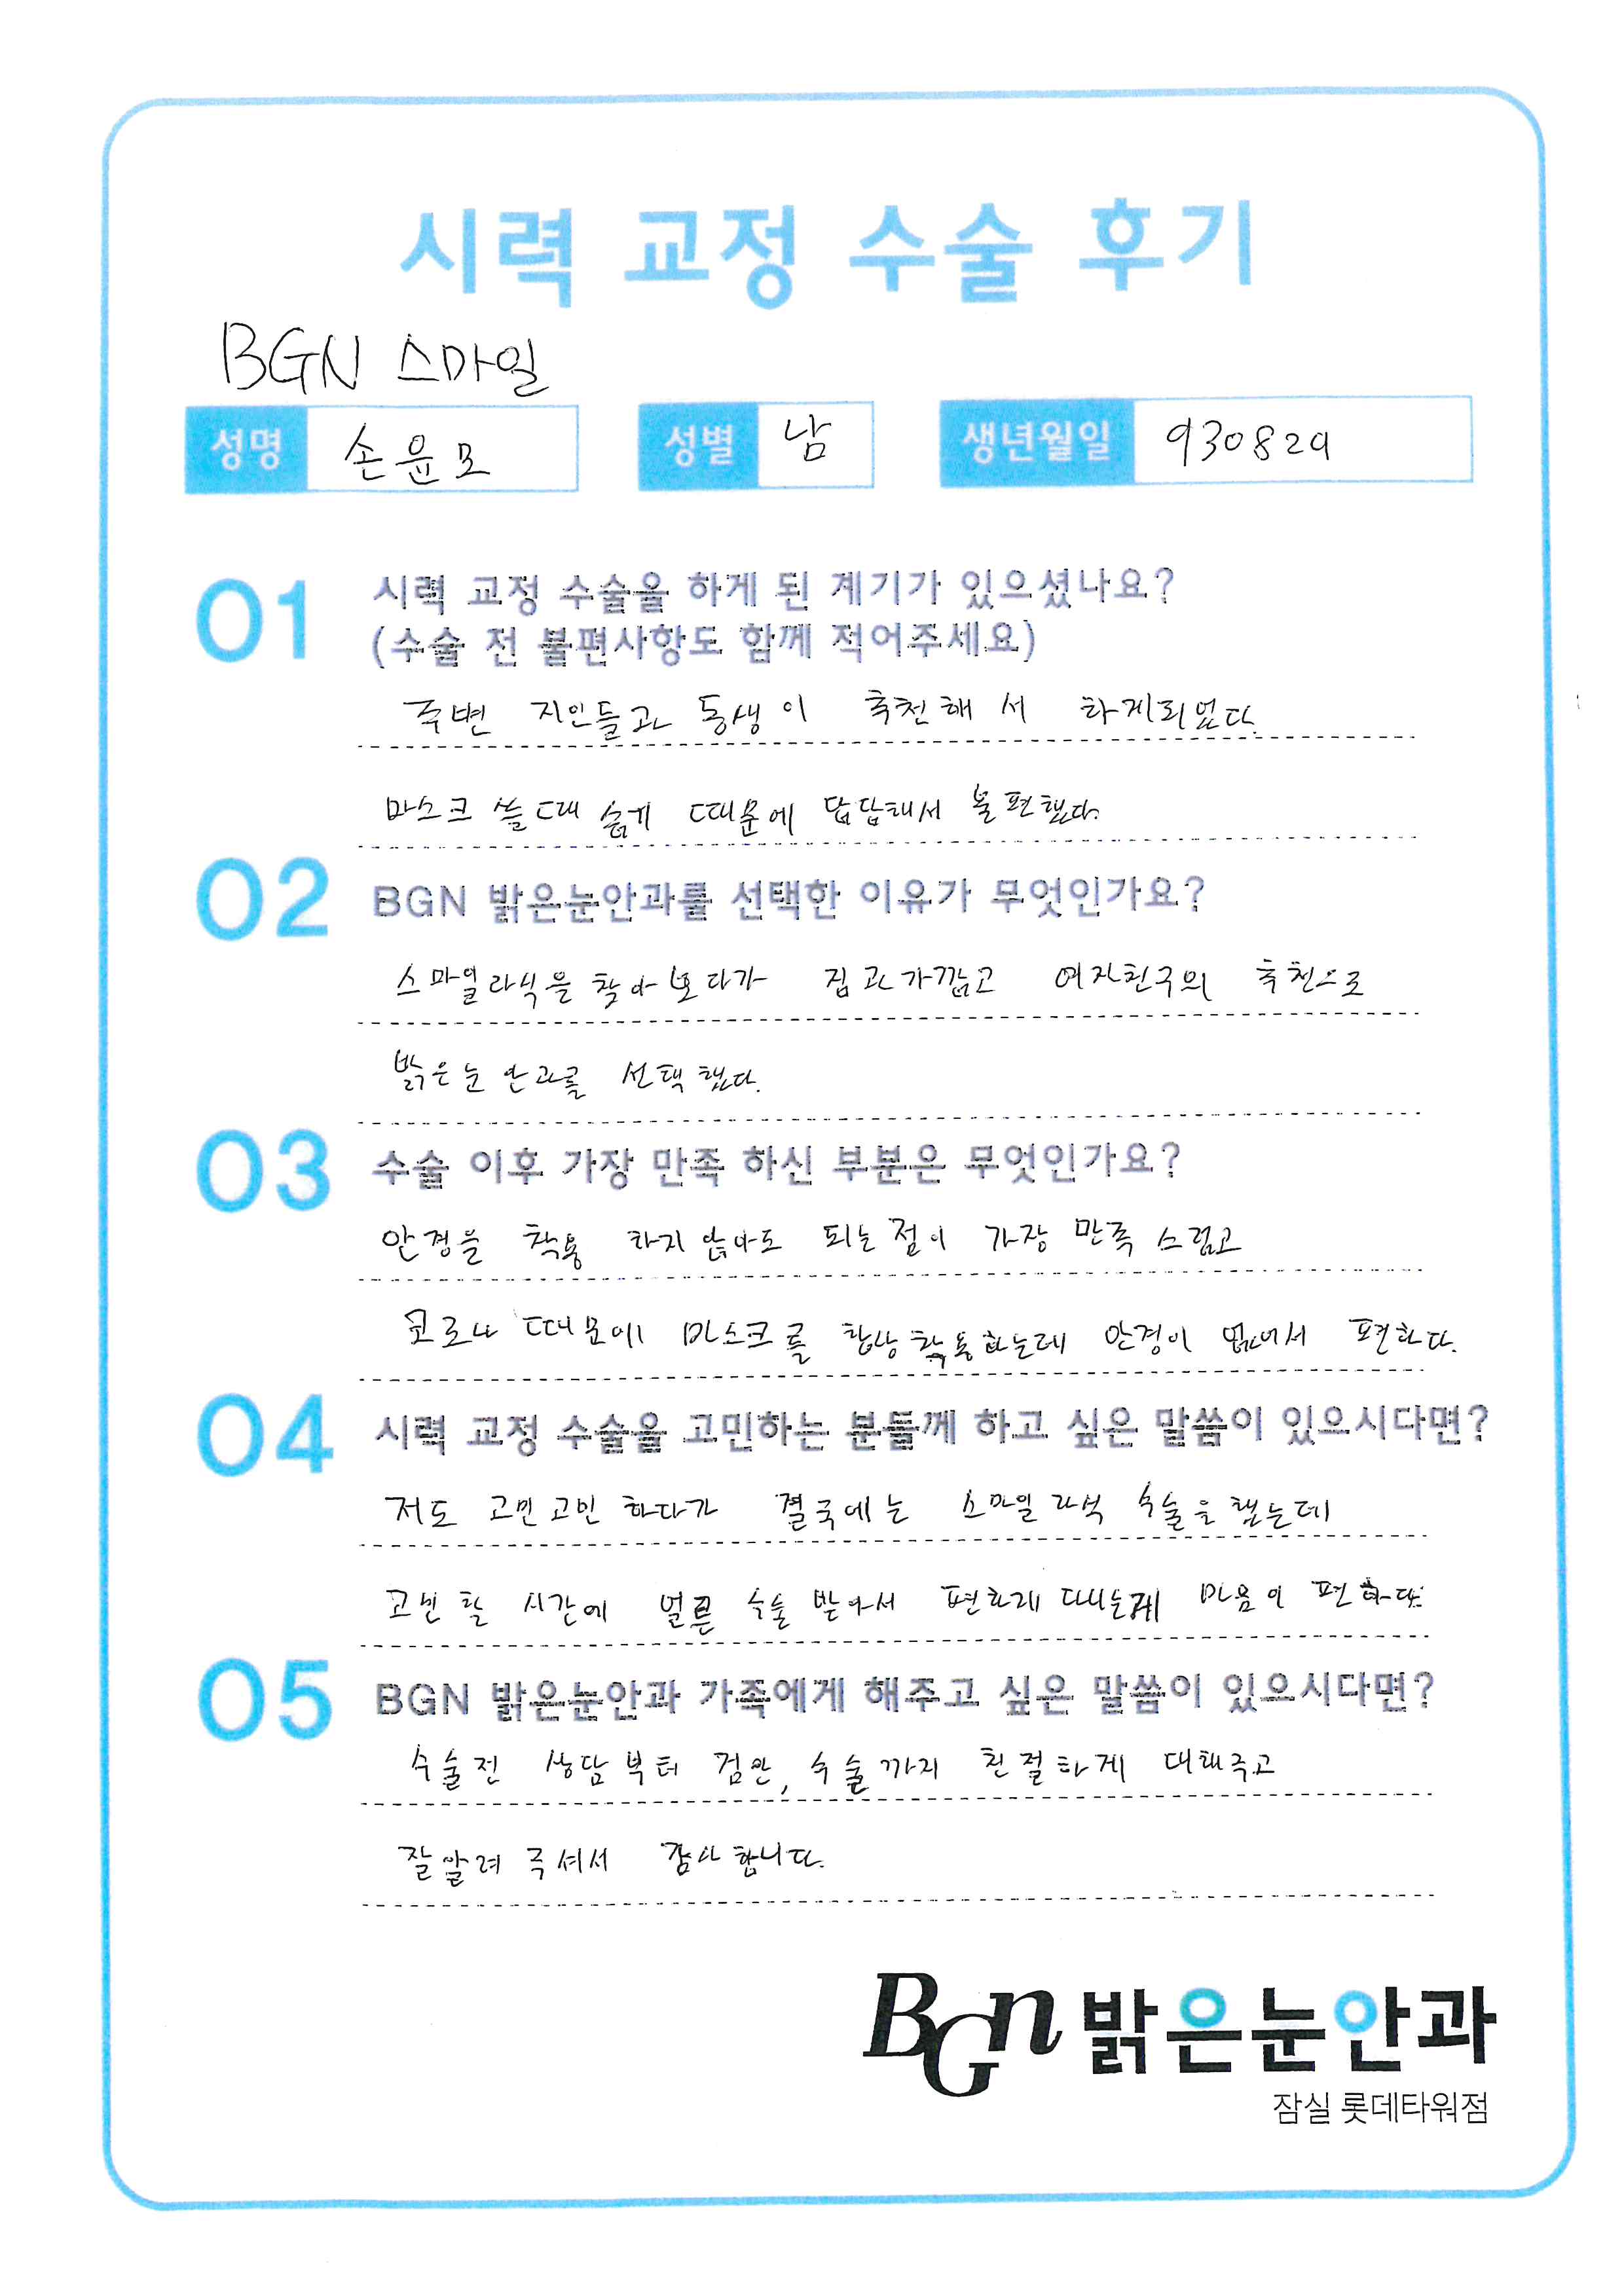 시력 교정 수술 후기
BGN 스마일
성명 손윤모 성별 남 생년월일 930829
01 시력 교정 수술을 하게 된 계기가 있으셨나요?
(수술 전 불편사항도 함께 적어주세요)
주변 지인들과 동생이 추천해서 하게되었다.
마스크 쓸때 숨기 때문에 답답해서 불편했다.
02 BGN 밝은눈안과를 선택한 이유가 무엇인가요?
스마일라식을 찾아보다가 집과 가깝고 여자친구의 추천으로
밝은눈안과를 선택했다.
03 수술 이후 가장 만족 하신 부분은 무엇인가요?
안경을 착용 하지 않아도 되는점이 가장 만족 스럽고
코로나 때문에 마스크를 항상 착용하는데 안경이 없어서 편하다.
04 시력 교정 수술을 고민하는 분들께 하고 싶은 말씀이 있으시다면?
저도 고민고민 하다가 결국에는 스마일라식 수술을 했는데
고민할 시간에 얼른 수술 받아서 편하게 다니는게 마음이 편하다.
05 BGN 밝은눈안과 가족에게 해주고 싶은 말씀이 있으시다면?
수술전 상담부터 검안, 수술까지 친절하게 대해주고
잘알려 주셔서 감사합니다.
BGn 밝은눈안과
잠실 롯데타워점